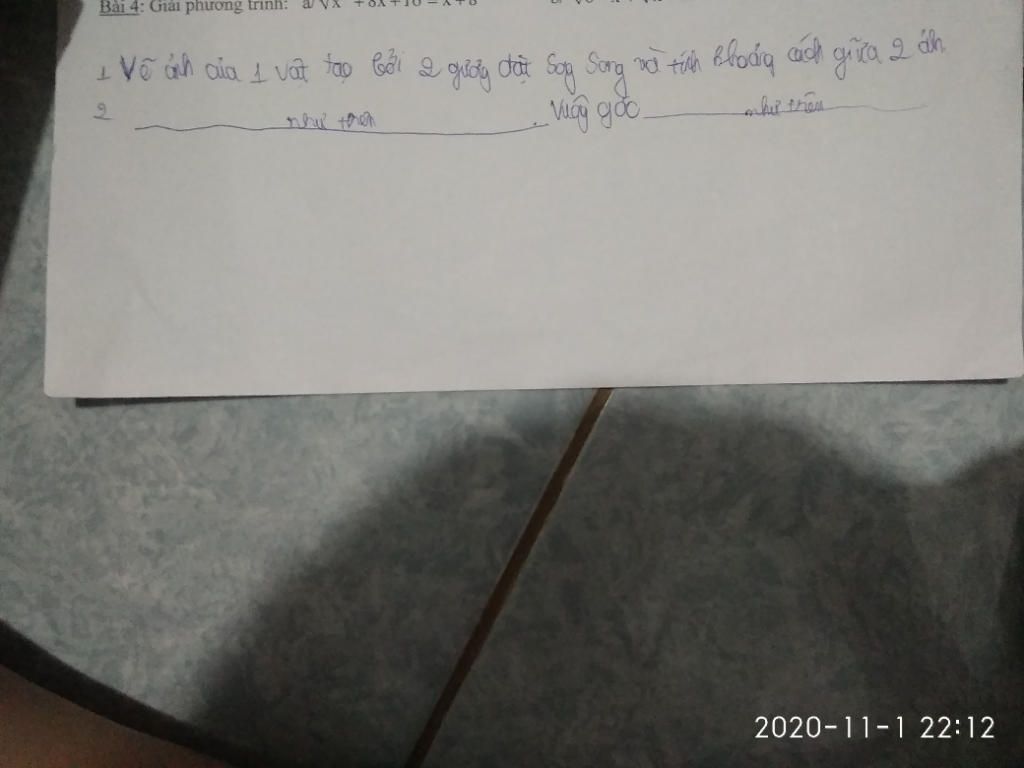 Bài 4: Giải phương trình: a/ √x + 8x + 16 = x + 8
1 Vẽ ảnh của 1 vật tạo bởi 2 gương đặt song song và tính khoảng cách giữa 2 ảnh
2 như trên vuông góc như trên
2020-11-1 22:12